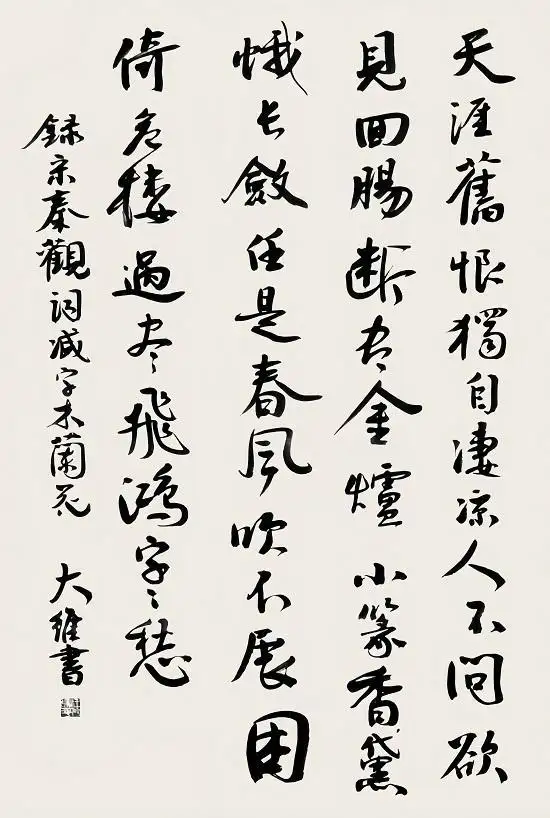 天涯舊恨獨自凄涼人不問欲
見回腸斷盡金爐小篆香黛
蛾長斂任是春風吹不展困
倚危樓過盡飛鴻字〻愁
録宋秦觀詞减字木蘭花 大維書